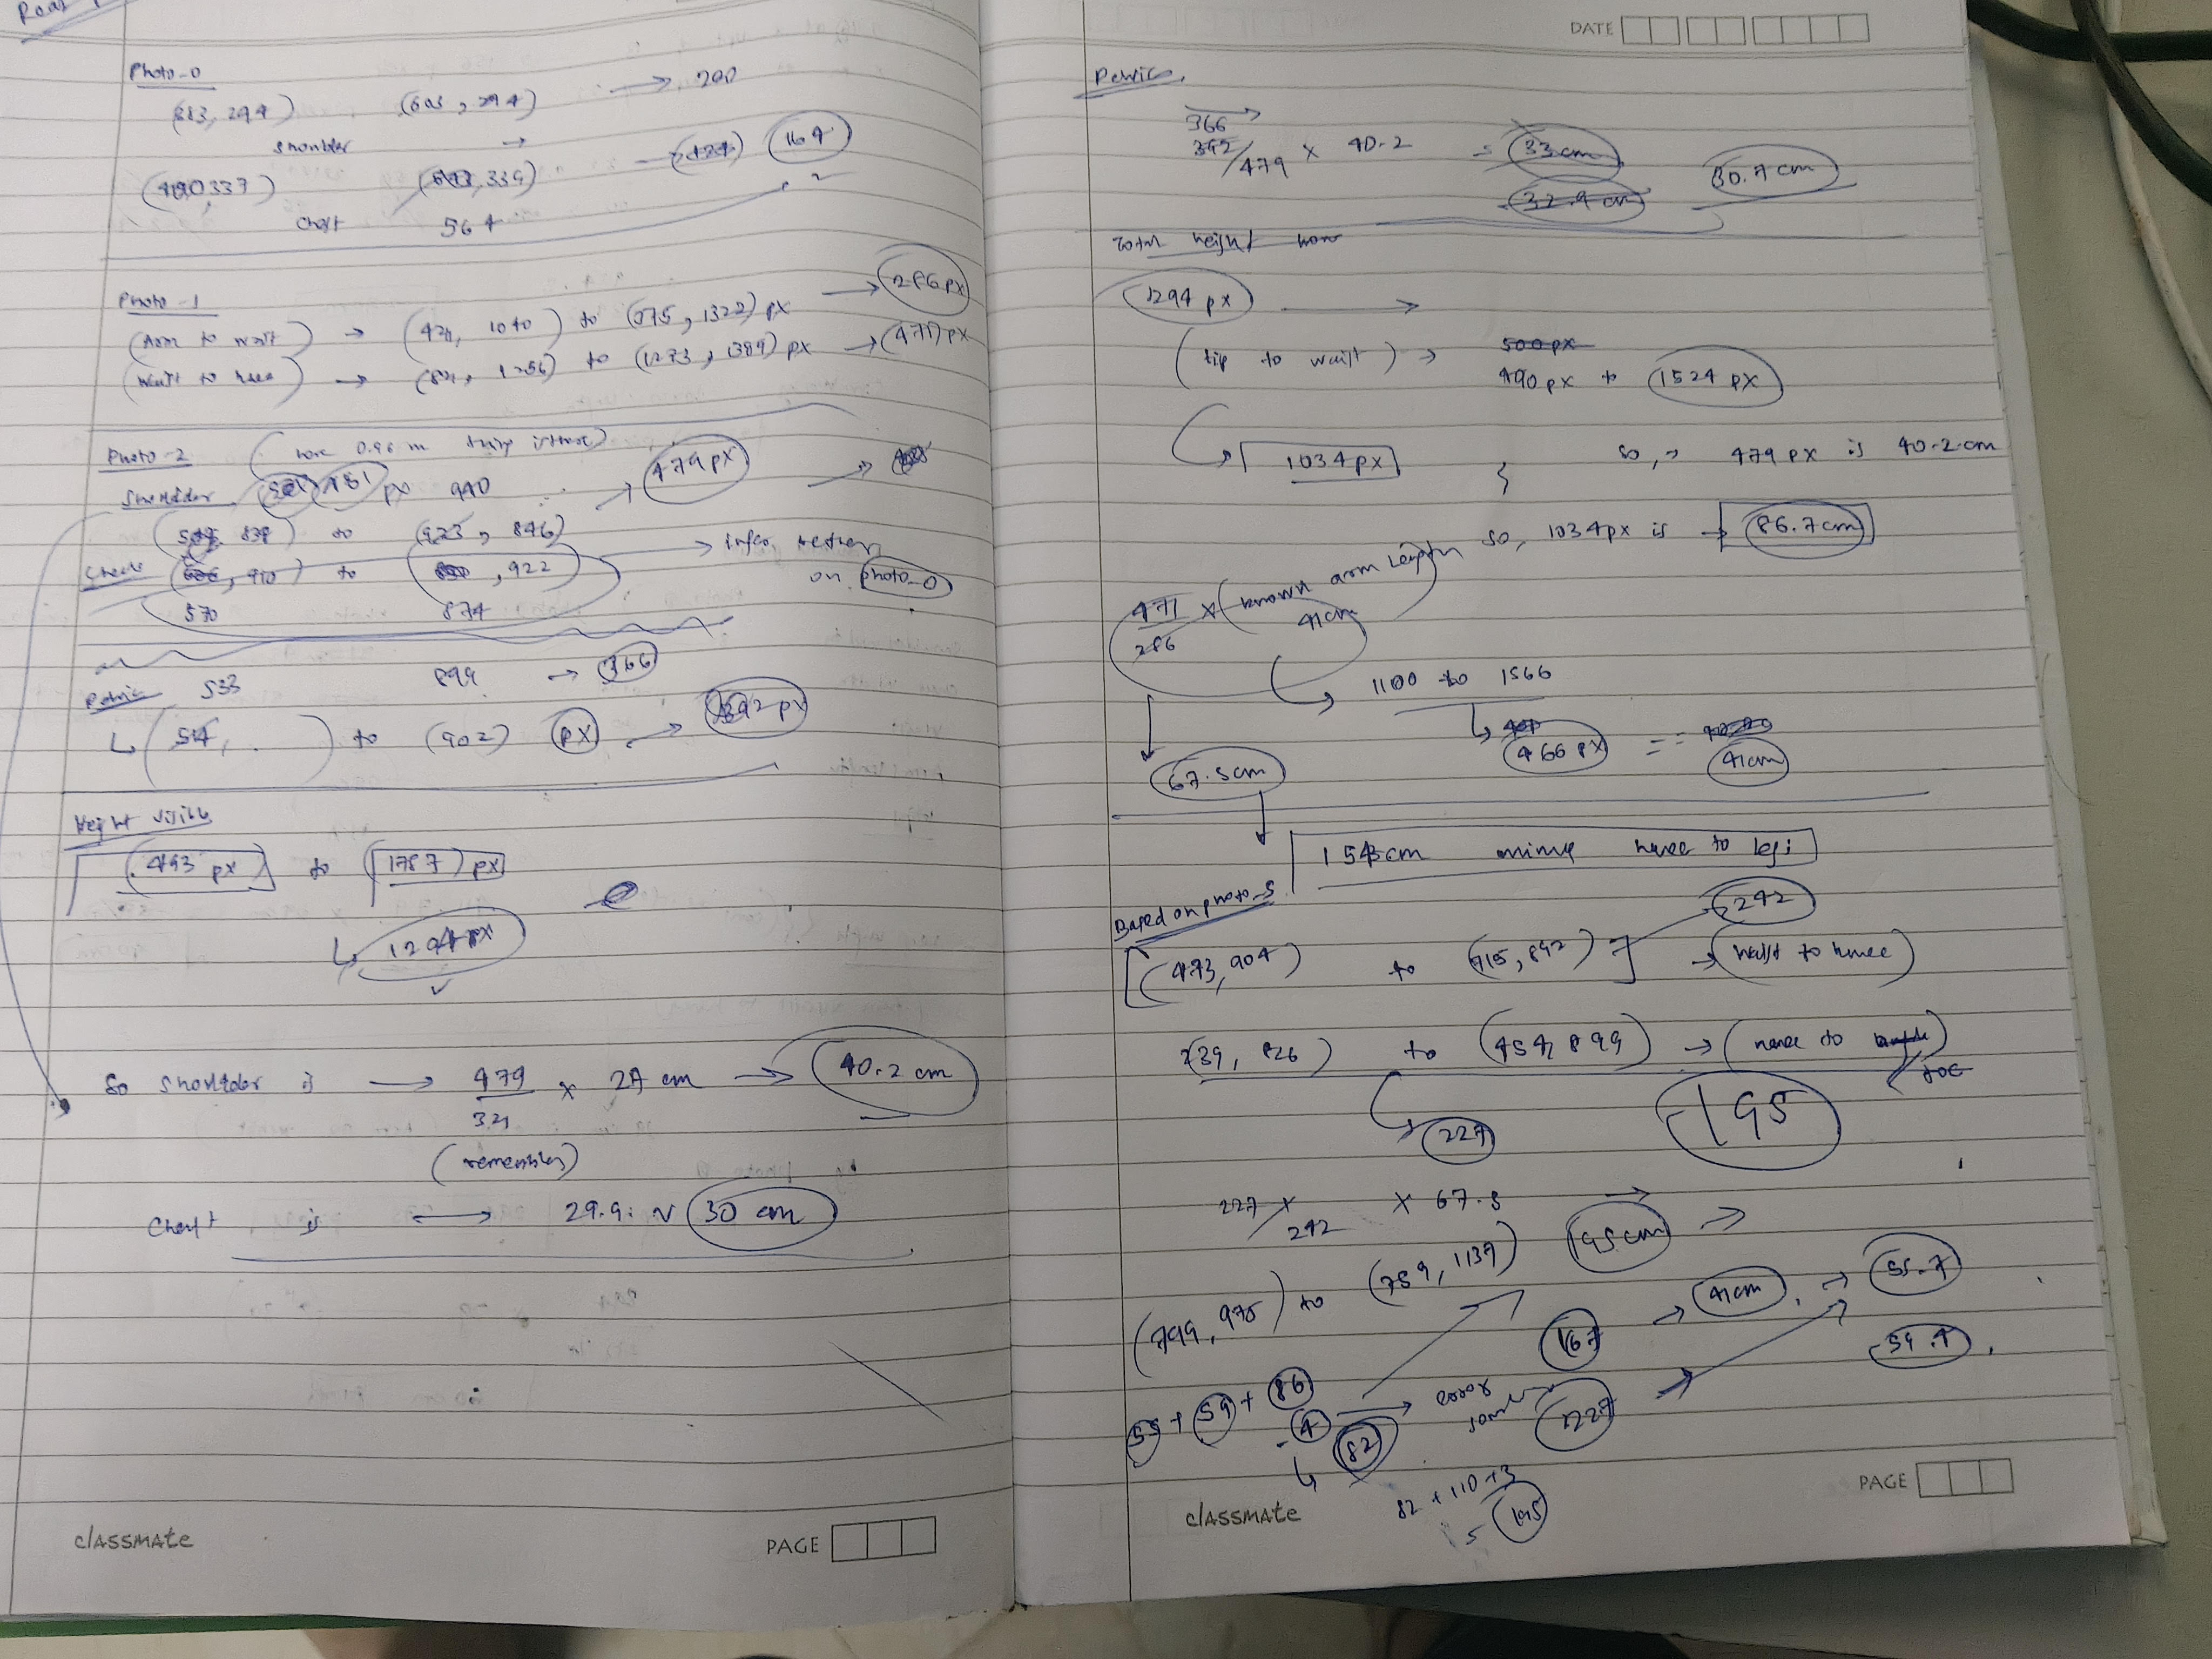 Photo-0
(383, 294) (603, 294) → 200
shoulder →
(400, 333) (, 339) → 164
chest 564
Photo-1
(Arm to waist) → (421, 1040) to (575, 1322) px → 286px
(waist to knee) → (821, 1256) to (1273, 1389) px → (471) px
Photo-2
Shoulder 481 px 940 → 479 px
(, 838) to (923, 846)
Chest (, 910) to (, 922) → on photo-0
570 874
Pelvic 533 899 → 366
↳ (514, ) to (902) px → 392 px
Height visible
(493 px) to (1787) px
↳ 1294px
So shoulder is → 479/321 × 27 cm → 40.2 cm
(remember)
Chest is ↔ 29.9 ~ 30 cm
classmate
PAGE
DATE
Pelvic
366
392/479 × 40.2 = 33cm 30.7cm
32.9 cm
Total height now
1294 px →
(tip to waist) → 500px
490 px to 1524 px
↳ 1034px so, → 479 px is 40.2cm
so, 1034px is → 86.7cm
471/286 × (known arm length 41cm)
↳ 1100 to 1566
↳ 466 px == 41cm
67.5cm
154cm minus knee to leg:
Based on photo-5
242
[(473, 904) to (715, 892)] → (waist to knee)
(239, 826) to (454, 899) → (knee to toe)
↳ 227
195
227/242 × 67.5
195cm →
(799, 975) to (759, 1137)
167 → 41cm, → 55.7
59.4
55 + 59 + 86
-4
82 → error
227
82 + 110 + 3
= 195
classmate
PAGE